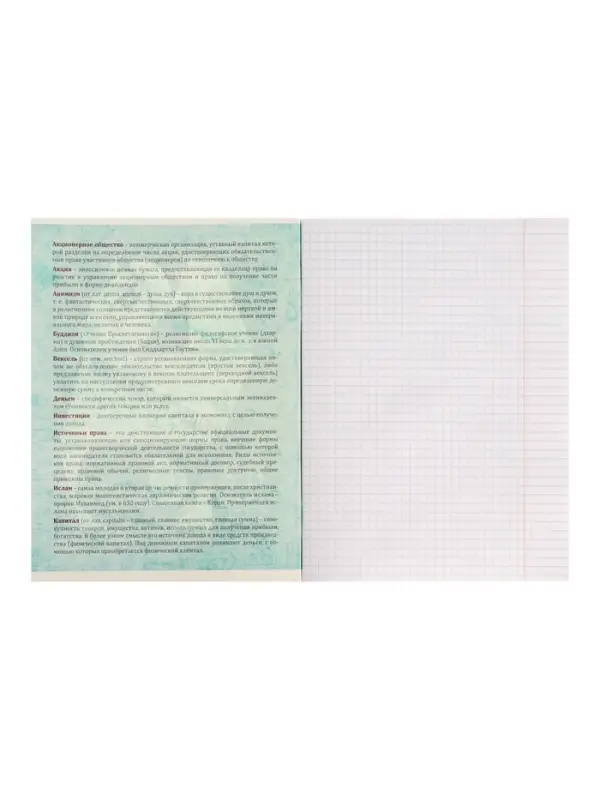 Акционерное общество – коммерческая организация, уставный капитал кото-
рой разделен на определенное число акций, удостоверяющих обязательствен-
ные права участников общества (акционеров) по отношению к обществу.
Акция – эмиссионная ценная бумага, предоставляющая ее владельцу право на
участие в управлении акционерным обществом и право на получение части
прибыли в форме дивидендов.
Анимизм (от лат. anima, animus – душа, дух) – вера в существование душ и духов,
т. е. фантастических, сверхъестественных, сверхчувственных образов, которые
в религиозном сознании представляются действующими во всей мертвой и жи-
вой природе агентами, управляющими всеми предметами и явлениями матери-
ального мира, включая и человека.
Буддизм («Учение Просветленного») – религиозно-философское учение (дхар-
ма) о духовном пробуждении (бодхи), возникшее около VI века до н. э. в Южной
Азии. Основателем учения был Сиддхартха Гаутама.
Вексель (от нем. Wechsel) – строго установленная форма, удостоверяющая ни-
чем не обусловленное обязательство векселедателя (простой вексель), либо
предложение иному указанному в векселе плательщику (переводной вексель)
уплатить по наступлении предусмотренного векселем срока определенную де-
нежную сумму в конкретном месте.
Деньги – специфический товар, который является универсальным эквивален-
том стоимости других товаров или услуг.
Инвестиции – долгосрочные вложения капитала в экономику с целью получе-
ния дохода.
Источники права – это действующие в государстве официальные докумен-
ты, устанавливающие или санкционирующие нормы права, внешние формы
выражения правотворческой деятельности государства, с помощью которой
воля законодателя становится обязательной для исполнения. Виды источни-
ков права: нормативный правовой акт, нормативный договор, судебный пре-
цедент, правовой обычай, религиозные тексты, правовые доктрины, общие
принципы права.
Ислам – самая молодая и вторая по численности приверженцев, после христиан-
ства, мировая монотеистическая авраамическая религия. Основатель ислама –
пророк Мухаммед (ум. в 632 году). Священная книга – Коран. Приверженцев ис-
лама называют мусульманами.
Капитал (от лат. capitalis – главный, главное имущество, главная сумма) – сово-
купность товаров, имущества, активов, используемых для получения прибыли,
богатства. В более узком смысле это источник дохода в виде средств производ-
ства (физический капитал). Под денежным капиталом понимают деньги, с по-
мощью которых приобретается физический капитал.